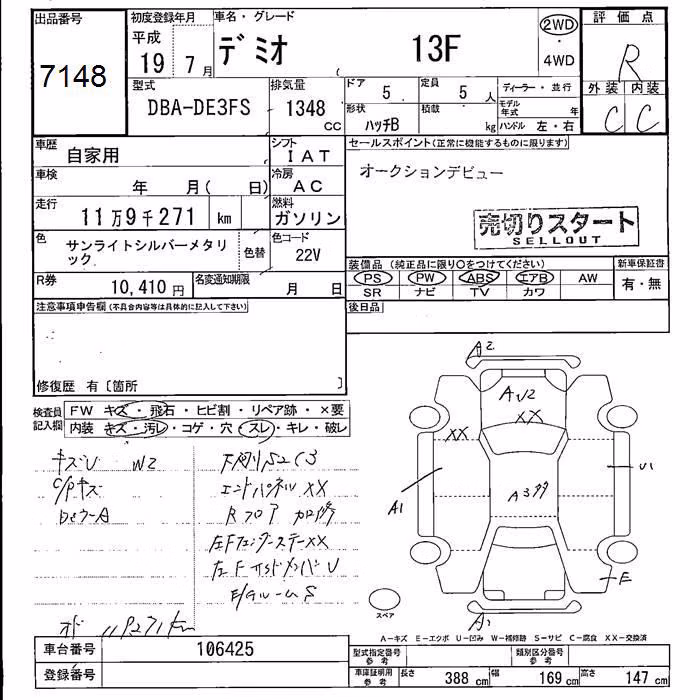 出品番号
7148
初度登録年月
平成
19 7月
車名・グレード
デミオ 13F
2WD
・
4WD
評価点
R
外装 内装
C C
型式
DBA-DE3FS
排気量
1348
CC
ドア
5
定員
5 人
ディーラー・並行
形状
ハッチB
積載
kg
モデル年式 年
ハンドル 左・右
車歴
自家用
シフト
IAT
車検
年 月( 日)
冷房
AC
走行
11万9千271 km
燃料
ガソリン
色
サンライトシルバーメタリック
色替
色コード
22V
R券
10,410円
名変通知期限
月 日
セールスポイント(正常に機能するものに限ります)
オークションデビュー
売切りスタート
SELLOUT
装備品(純正品に限り○をつけてください)
新車保証書
PS PW ABS エアB AW
有・無
SR ナビ TV カワ
後日品
注意事項申告欄(不具合内容等は具体的に記入して下さい)
修復歴 有〔箇所 〕
検査員記入欄
FW キズ・飛石・ヒビ割・リペア跡・×要
内装 キズ・汚レ・コゲ・穴・スレ・キレ・破レ
キズU W2
C/Pキズ
エンドパネルXX
Rフロア
左Fフェンダーステー XX
A2
XX
XX
A1
A3
U1
E
A1
スペア
A-キズ E-エクボ U-凹み W-補修跡 S-サビ C-腐食 XX-交換済
車台番号
106425
登録番号
型式指定番号
参考
類別区分番号
参考
車庫証明用
参考
長さ 388 cm 幅 169 cm 高さ 147 cm